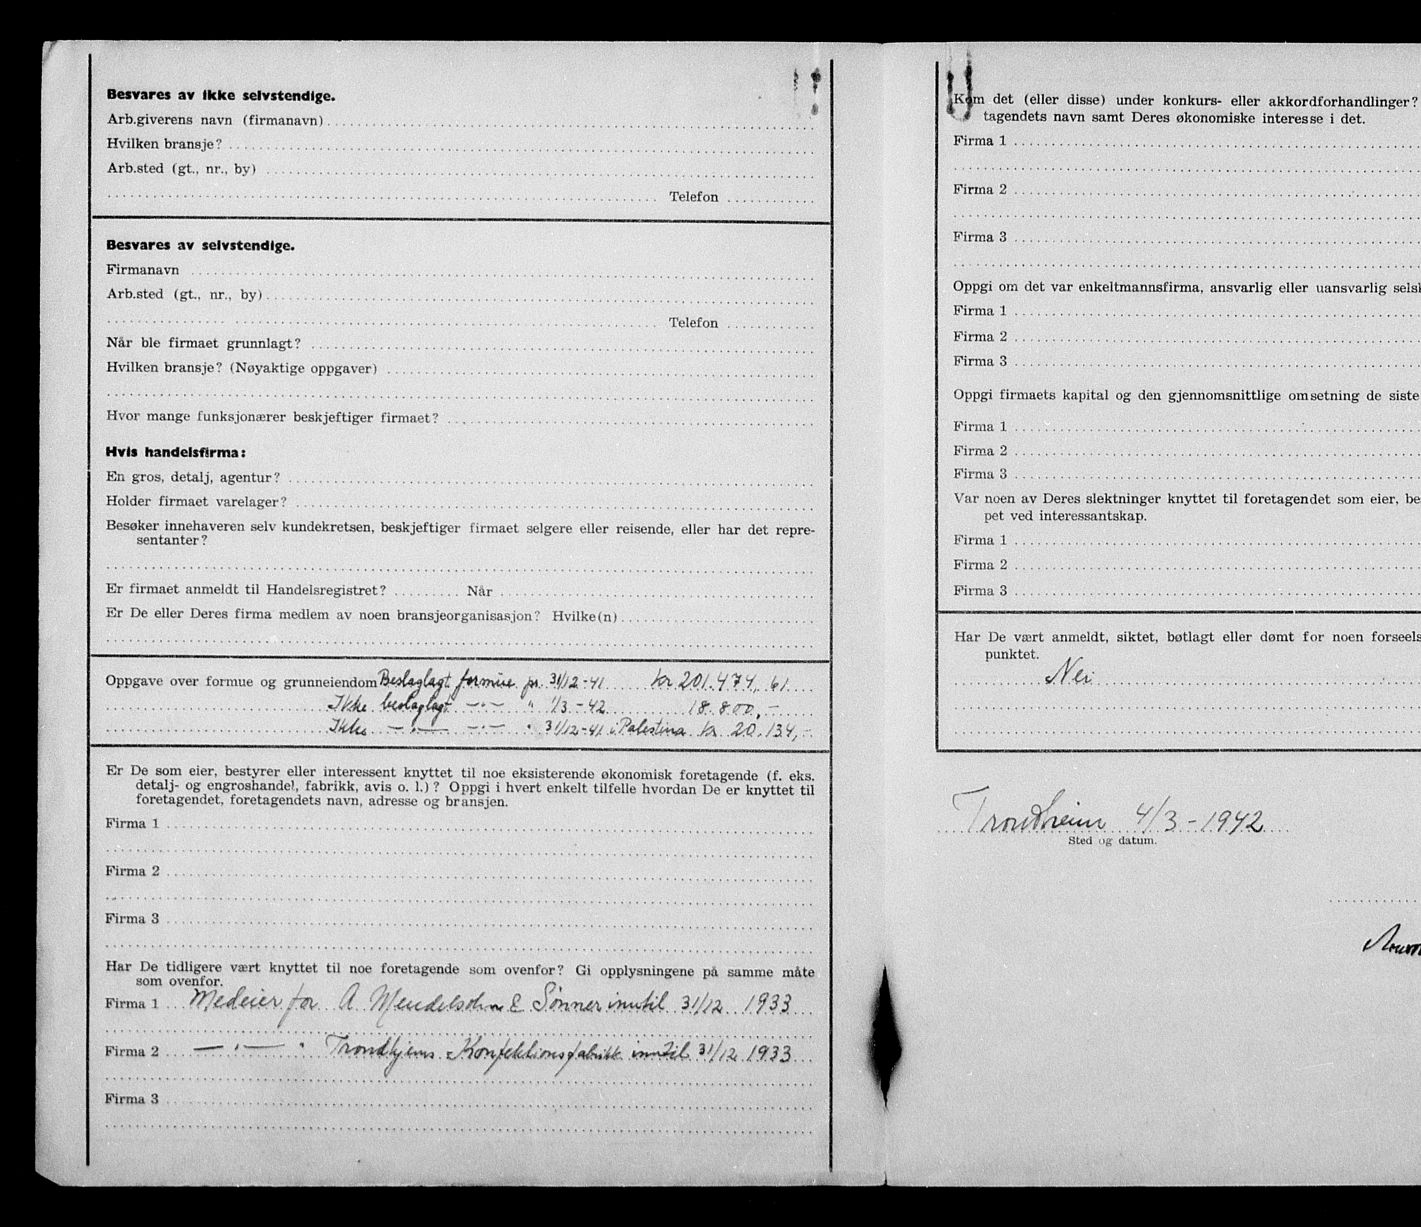 Besvares av ikke selvstendige.
Arb.giverens navn (firmanavn)
Hvilken bransje?
Arb.sted (gt., nr., by)
Telefon
Besvares av selvstendige.
Firmanavn
Arb.sted (gt., nr., by)
Telefon
Når ble firmaet grunnlagt?
Hvilken bransje? (Nøyaktige oppgaver)
Hvor mange funksjonærer beskjeftiger firmaet?
Hvis handelsfirma:
En gros, detalj, agentur?
Holder firmaet varelager?
Besøker innehaveren selv kundekretsen, beskjeftiger firmaet selgere eller reisende, eller har det repre-
sentanter?
Er firmaet anmeldt til Handelsregistret? Når
Er De eller Deres firma medlem av noen bransjeorganisasjon? Hvilke(n)
Oppgave over formue og grunneiendom Beslaglagt formue pr. 31/12-41 kr 201.474,61
Ikke beslaglagt —"— " 1/3-42 18.800,-
Ikke —"— —"— " 31/12-41 i Palestina kr 20.134,-
Er De som eier, bestyrer eller interessent knyttet til noe eksisterende økonomisk foretagende (f. eks.
detalj- og engroshandel, fabrikk, avis o. l.)? Oppgi i hvert enkelt tilfelle hvordan De er knyttet til
foretagendet, foretagendets navn, adresse og bransjen.
Firma 1
Firma 2
Firma 3
Har De tidligere vært knyttet til noe foretagende som ovenfor? Gi opplysningene på samme måte
som ovenfor.
Firma 1 Medeier for A Mendelsohn & Sønner inntil 31/12 1933
Firma 2 —"— " Trondhjems Konfektionsfabrikk inntil 31/12 1933
Firma 3
Kom det (eller disse) under konkurs- eller akkordforhandlinger?
tagendets navn samt Deres økonomiske interesse i det.
Firma 1
Firma 2
Firma 3
Oppgi om det var enkeltmannsfirma, ansvarlig eller uansvarlig selsk
Firma 1
Firma 2
Firma 3
Oppgi firmaets kapital og den gjennomsnittlige omsetning de siste
Firma 1
Firma 2
Firma 3
Var noen av Deres slektninger knyttet til foretagendet som eier, be
pet ved interessantskap.
Firma 1
Firma 2
Firma 3
Har De vært anmeldt, siktet, bøtlagt eller dømt for noen forseels
punktet.
Nei
Trondheim 4/3-1942
Sted og datum.